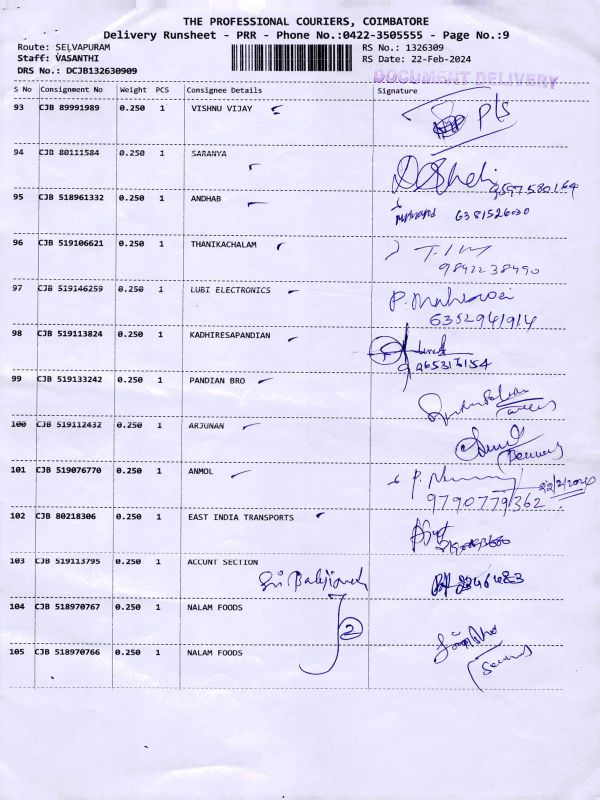 THE PROFESSIONAL COURIERS, COIMBATORE
Delivery Runsheet - PRR - Phone No.:0422-3505555 - Page No.:9
Route: SELVAPURAM RS No.: 1326309
Staff: VASANTHI RS Date: 22-Feb-2024
DRS No.: DCJB132630909
DOCUMENT DELIVERY
S No Consignment No Weight PCS Consignee Details Signature
93 CJB 89991989 0.250 1 VISHNU VIJAY
94 CJB 80111584 0.250 1 SARANYA
95 CJB 518961332 0.250 1 ANDHAB 6381526030
96 CJB 519106621 0.250 1 THANIKACHALAM
9842238490
97 CJB 519146259 0.250 1 LUBI ELECTRONICS
6352941914
98 CJB 519113824 0.250 1 KADHIRESAPANDIAN
99 CJB 519133242 0.250 1 PANDIAN BRO
100 CJB 519112432 0.250 1 ARJUNAN
101 CJB 519076770 0.250 1 ANMOL 22/2/2024
9790779362
102 CJB 80218306 0.250 1 EAST INDIA TRANSPORTS
103 CJB 519113795 0.250 1 ACCUNT SECTION
104 CJB 518970767 0.250 1 NALAM FOODS
2
105 CJB 518970766 0.250 1 NALAM FOODS